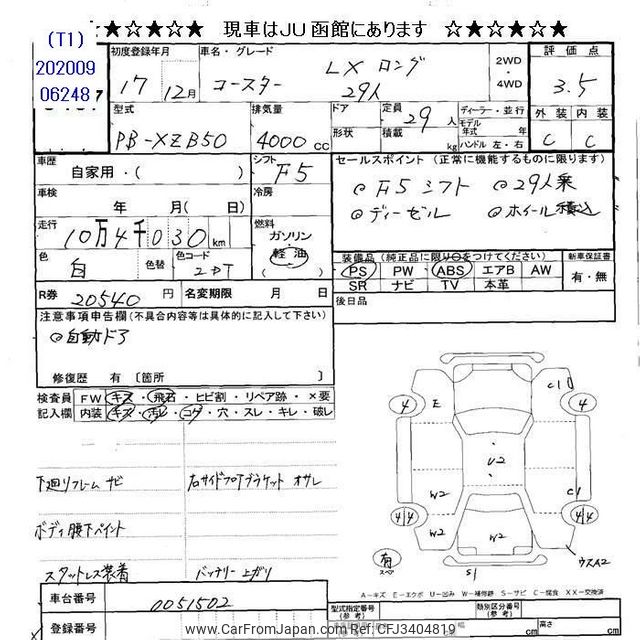 ☆★☆★☆ 現車はJU函館にあります ☆★☆★☆
(T1)
202009
06248
初度登録年月 車名・グレード 2WD・4WD 評価点
17 12月 コースター LX ロング 29人 3.5
型式 排気量 ドア 定員 29人 ディーラー・並行 外装 内装
PB-XZB50 4000cc 形状 積載 kg モデル年式 年 ハンドル 左・右 C C
車歴 自家用・( ) シフト F5
車検 年 月( 日) 冷房
走行 10万4千030km 燃料 ガソリン 軽油
色 白 色替 色コード
R券 20540円 名変期限 月 日
セールスポイント (正常に機能するものに限ります)
◎F5シフト ◎29人乗
◎ディーゼル ◎ホイール積込
装備品(純正品に限り○をつけてください) 新車保証書
PS PW ABS エアB AW 有・無
SR ナビ TV 本革
後日品
注意事項申告欄(不具合内容等は具体的に記入して下さい)
◎自動ドア
修復歴 有 〔箇所 〕
検査員 FW キズ・飛石・ヒビ割・リペア跡・×要
記入欄 内装 キズ・汚レ・コゲ・穴・スレ・キレ・破レ
下廻りフレーム サビ
ボディ腰下ペイント
スタットレス装着 バッテリー上がり
4 E C1 4
U2
W2 C1
44 W2 W2 44
有 スペア S1
A-キズ E-エクボ U-凹み W-補修跡 S-サビ C-腐食 XX-交換済
車台番号 0051502
登録番号
型式指定番号(参考) 類別区分番号(参考)
幅 高さ
www.CarFromJapan.com Ref:CFJ3404819